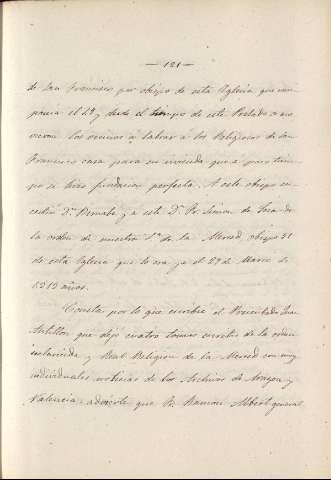 — 121 —
de San Francisco por obispo de esta Iglesia que em-
pera el 1º y desde el tiempo de este Prelado
los vecinos á labrar á los Religiosos de San
Francisco casa para su vivienda que á poco tiem-
po se hizo fundacion perfecta. A este obispo su-
cedió Dn. Bernabe, y á este D. Fr. Simon de de
la orden de nuestra Sra. de la Merced obispo 31
de esta Iglesia que lo era ya el 29 de Marzo de
1313 años.
Consta por lo que escribe el Presentado Juan
Antillon que dejó cuatro tomos escritos de la orden
esclarecida y Real Religion de la Merced con muy
individuales noticias de los Archivos de Aragon y
Valencia: advierte que Fr. Ramon Albert general